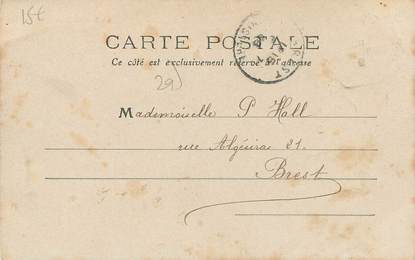 15€
CARTE POSTALE
Ce côté est exclusivement réservé à l'adresse
29
Mademoiselle P Hall
rue Algésiras 21.
Brest